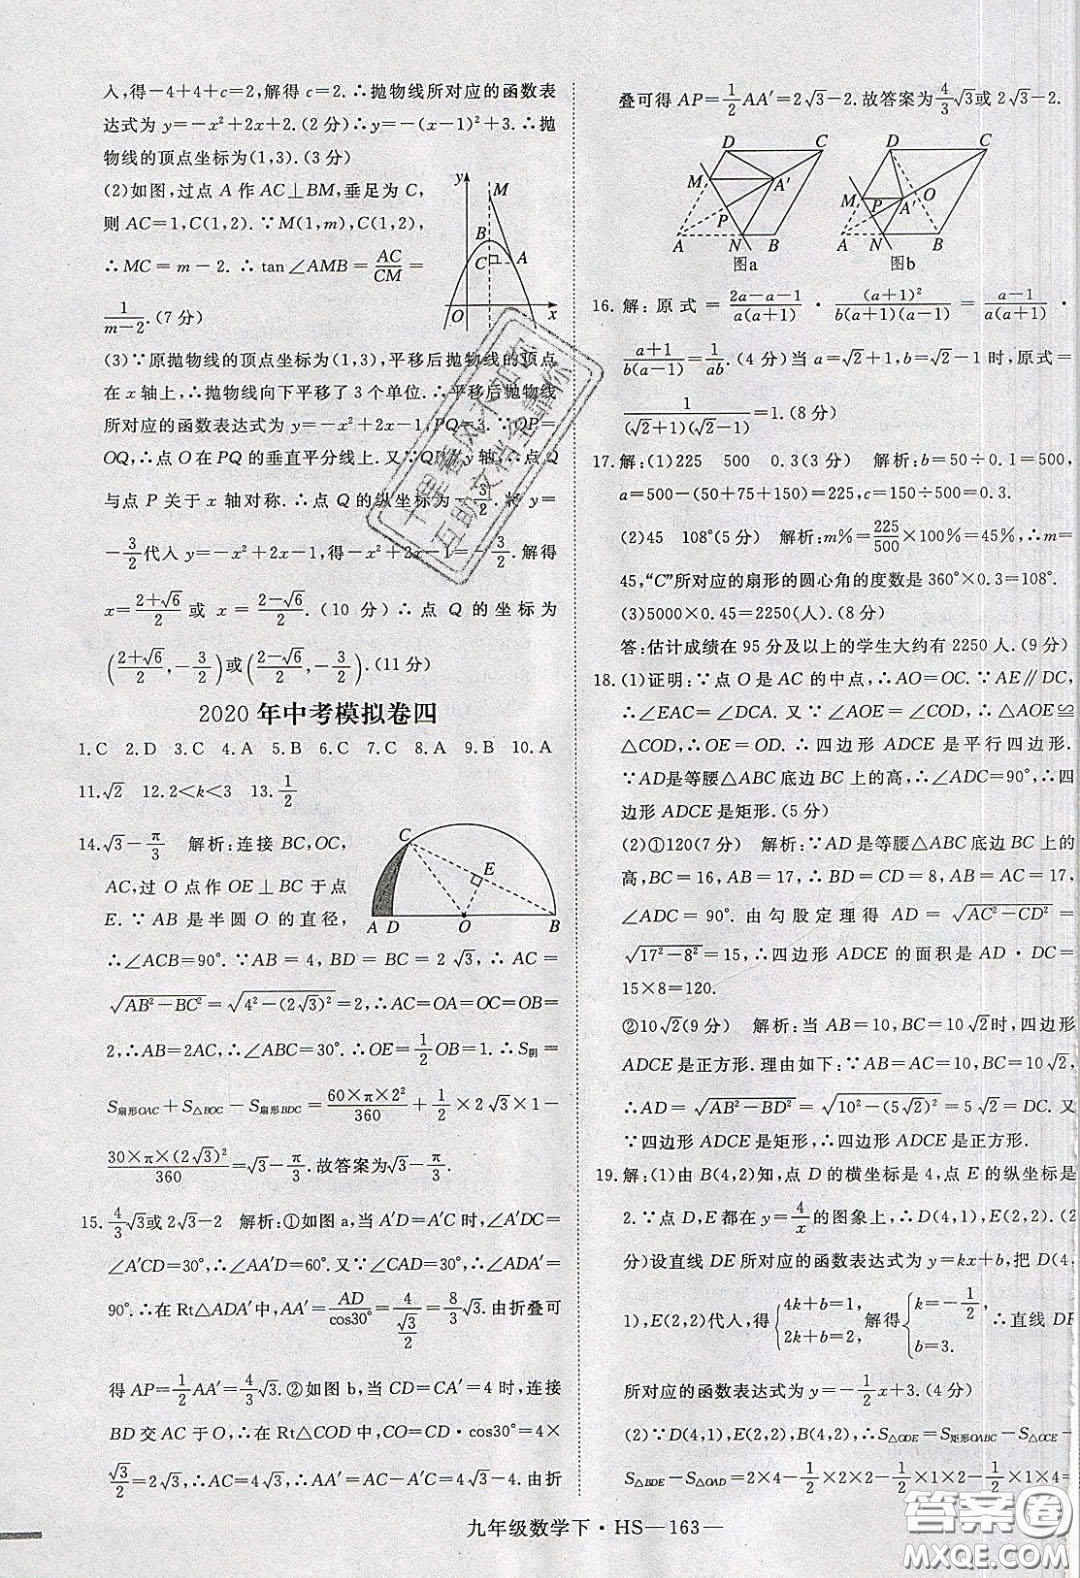 入,得-4+4+c=2,解得c=2.∴抛物线所对应的函数表
达式为y=-x²+2x+2.(2分)∴y=-(x-1)²+3.∴抛
物线的顶点坐标为(1,3).(3分)
(2)如图,过点A作AC⊥BM,垂足为C,
则AC=1,C(1,2).∵M(1,m),C(1,2),
∴MC=m-2.∴tan∠AMB=AC/CM=
1/(m-2).(7分)
y M B C A O x
(3)∵原抛物线的顶点坐标为(1,3),平移后抛物线的顶点
在x轴上,∴抛物线向下平移了3个单位.∴平移后抛物线
所对应的函数表达式为y=-x²+2x-1,PQ=3.∵OP=
OQ,∴点O在PQ的垂直平分线上.又∵QP∥y轴,∴点Q
与点P关于x轴对称.∴点Q的纵坐标为-3/2.将y=
-3/2代入y=-x²+2x-1,得-x²+2x-1=-3/2.解得
x=(2+√6)/2或x=(2-√6)/2.(10分)∴点Q的坐标为
((2+√6)/2,-3/2)或((2-√6)/2,-3/2).(11分)
2020年中考模拟卷四
1.C 2.D 3.C 4.A 5.B 6.C 7.C 8.A 9.B 10.A
11.√2 12.2<k<3 13.1/2
14.√3-π/3 解析:连接BC,OC,
AC,过O点作OE⊥BC于点
E.∵AB是半圆O的直径,
C E A D O B
∴∠ACB=90°.∵AB=4,BD=BC=2√3,∴AC=
√(AB²-BC²)=√(4²-(2√3)²)=2,∴AC=OA=OC=OB=
2,∴AB=2AC,∴∠ABC=30°.∴OE=1/2OB=1.∴S阴=
S扇形OAC+S△BOC-S扇形BDC=(60×π×2²)/360+1/2×2√3×1-
(30×π×(2√3)²)/360=√3-π/3.故答案为√3-π/3.
15.4/3√3或2√3-2 解析:①如图a,当A′D=A′C时,∠A′DC=
∠A′CD=30°,∴∠AA′D=60°.又∵∠ADC=120°,∴∠ADA′=
90°.∴在Rt△ADA′中,AA′=AD/cos30°=4/(√3/2)=8/3√3.由折叠可
得AP=1/2AA′=4/3√3.②如图b,当CD=CA′=4时,连接
BD交AC于O,在Rt△COD中,CO=CD·cos30°=4×
√3/2=2√3,∴AC=4√3,∴AA′=AC-A′C=4√3-4.由折
叠可得AP=1/2AA′=2√3-2.故答案为4/3√3或2√3-2.
D C M A′ P A N B 图a
D C M P A′ O A N B 图b
16.解:原式=(2a-a-1)/(a(a+1))·(a+1)²/(b(a+1)(a-1))=(a-1)/(a(a+1))·
(a+1)/(b(a-1))=1/ab.(4分)当a=√2+1,b=√2-1时,原式=
1/((√2+1)(√2-1))=1.(8分)
17.解:(1)225 500 0.3(3分) 解析:b=50÷0.1=500,
a=500-(50+75+150)=225,c=150÷500=0.3.
(2)45 108°(5分) 解析:m%=225/500×100%=45%,∴m=
45,“C”所对应的扇形的圆心角的度数是360°×0.3=108°.
(3)5000×0.45=2250(人).(8分)
答:估计成绩在95分及以上的学生大约有2250人.(9分)
18.(1)证明:∵点O是AC的中点,∴AO=OC.∵AE∥DC,
∴∠EAC=∠DCA.又∵∠AOE=∠COD,∴△AOE≌
△COD,∴OE=OD.∴四边形ADCE是平行四边形.
∵AD是等腰△ABC底边BC上的高,∴∠ADC=90°,∴四
边形ADCE是矩形.(5分)
(2)①120(7分) 解析:∵AD是等腰△ABC底边BC上的
高,BC=16,AB=17,∴BD=CD=8,AB=AC=17,
∠ADC=90°.由勾股定理得AD=√(AC²-CD²)=
√(17²-8²)=15,∴四边形ADCE的面积是AD·DC=
15×8=120.
②10√2(9分) 解析:当AB=10,BC=10√2时,四边形
ADCE是正方形.理由如下:∵AB=AC=10,BC=10√2,
∴AD=√(AB²-BD²)=√(10²-(5√2)²)=5√2=DC.又
∵四边形ADCE是矩形,∴四边形ADCE是正方形.
19.解:(1)由B(4,2)知,点D的横坐标是4,点E的纵坐标是
2.∵点D,E都在y=4/x的图象上,∴D(4,1),E(2,2).(2
分)设直线DE所对应的函数表达式为y=kx+b,把D(4,
1),E(2,2)代入,得{4k+b=1, 2k+b=2.解得{k=-1/2, b=3.∴直线DE
所对应的函数表达式为y=-1/2x+3.(4分)
(2)∵D(4,1),E(2,2),B(4,2),∴S△ODE=S矩形OABC-S△OCE-
S△BDE-S△OAD=2×4-1/2×2×2-1/2×2×1-1/2×4×1=
九年级数学下·HS—163—
十里春风不如你
互助文档全靠你
答案圈
MXQE.COM